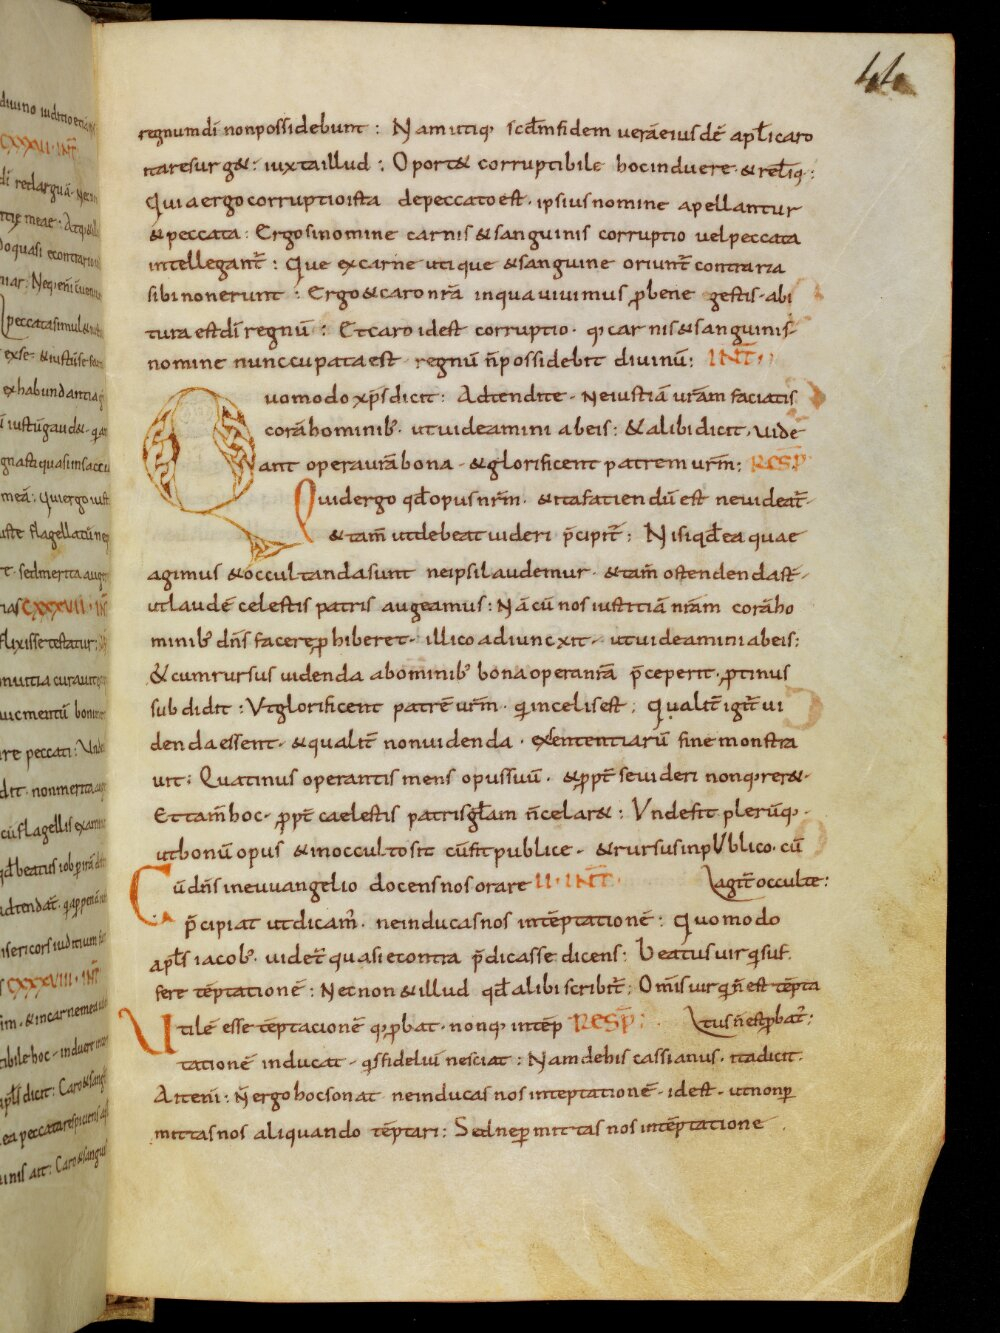 44
regnum dī non possidebunt : Nam utiq; scdm fidem verā eius dē apl̄i caro
ita resurg& : iuxta illud : Oport& corruptibile hoc induere · & reliq; :
Quia ergo corruptio ista de peccato est · ipsius nomine apellantur
& peccata : Ergo si nomine carnis & sanguinis corruptio vel peccata
intellegant̄ : Que ex carne utique & sanguine oriunt̄ contraria
sibi non erunt : Ergo & caro nr̄a in qua vivimus p bene gestis · abi
tura est dī regnū : Et caro id est corruptio · q; carnis & sanguinis
nomine nunccupata est · regnū n̄ possidebit divinū : INT̄ ·
Quomodo xp̄s dicit : Adtendite · Ne iustiā vr̄am faciatis
corā hominib; · ut videamini ab eis : & alibi dicit · vide
ant opera vr̄a bona · & glorificent patrem vr̄m : RESP̄
Quid ergo qd̄ opus nr̄m · & ita fatiendū est ne videat̄ ·
& tam̄ ut debeat videri p̄cipit̄ : Nisi qd̄ ea quae
agimus & occultanda sunt ne ipsi laudemur · & tam̄ ostendenda st̄ ·
ut laudē celestis patris augeamus : Nā cū nos iustitiā nr̄am corā ho
minib; dn̄s facere phiberet · illico adiuncxit · ut videamini ab eis :
& cum rursus videnda ab ominib; bona opera nr̄a p̄ceperit · ptinus
subdidit : Ut glorificent patrē vr̄m · qi in celis est ; Qualit̄ igit̄ vi
denda essent · & qualit̄ non videnda · ex sententiarū fine monstra
vit : Quatinus operantis mens opus suū · & ppt̄ se videri non q;rer& ·
Et tam̄ hoc · ppt̄ caelestis patris gl̄am n̄ celar& : Unde fit plerūq; ·
ut bonū opus & in occulto sit cū fit publice · & rursus in pUblico · cū
Cū dn̄s in euvangelio docens nos orare II · INT̄ · agit̄ occulte :
p̄cipiat ut dicam̄ · ne inducas nos in tēptationē : Quomodo
apl̄s iacob; · videt̄ quasi econtra p̄dicasse dicens : Beatus vir qi suf
fere tēptationē : Nec non & illud qd̄ alibi scribit̄ : Om̄is vir qi n̄ est tēpta
Utilē esse tēptacionē q; pbat · non q; in tēp RESP̄ : tus n̄ est pbat̄ :
tationē inducat · qi s fidelui nesciat : Nam de his cassianus · ita dicit ·
Ait enī : N̄ ergo hoc sonat ne inducas nos in teptationē · id est · ut non p
mittas nos aliquando tēptari : Sed ne pmittas nos in tēptatione